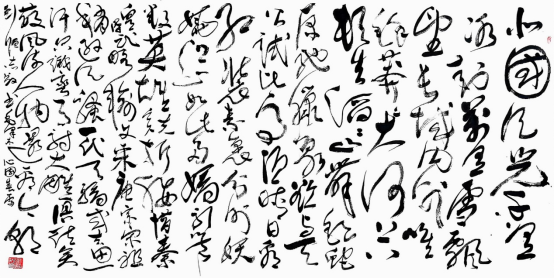 北国风光千里
冰封万里雪飘
望长城内外惟
余莽莽大河上下
顿失滔滔山舞银蛇
原驰蜡象欲与天
公试比高须晴日看
红装素裹分外妖
娆江山如此多娇引无
数英雄竞折腰惜秦
皇汉武略输文采唐宗宋祖
稍逊风骚一代天骄成吉思
汗只识弯弓射大雕俱往矣
数风流人物还看今朝